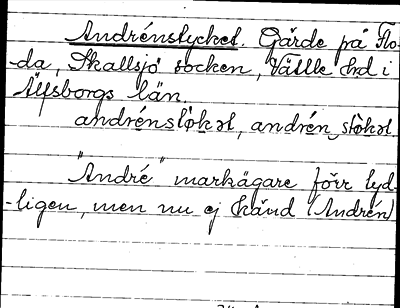 Andrénstycket. Gärde på Flo-
da, Skallsjö socken, Vättle hd i
Älfsborgs län.
andrénstökət, andrén stökət
"André" markägare förr tyd-
-ligen, men nu ej känd (Andrén)